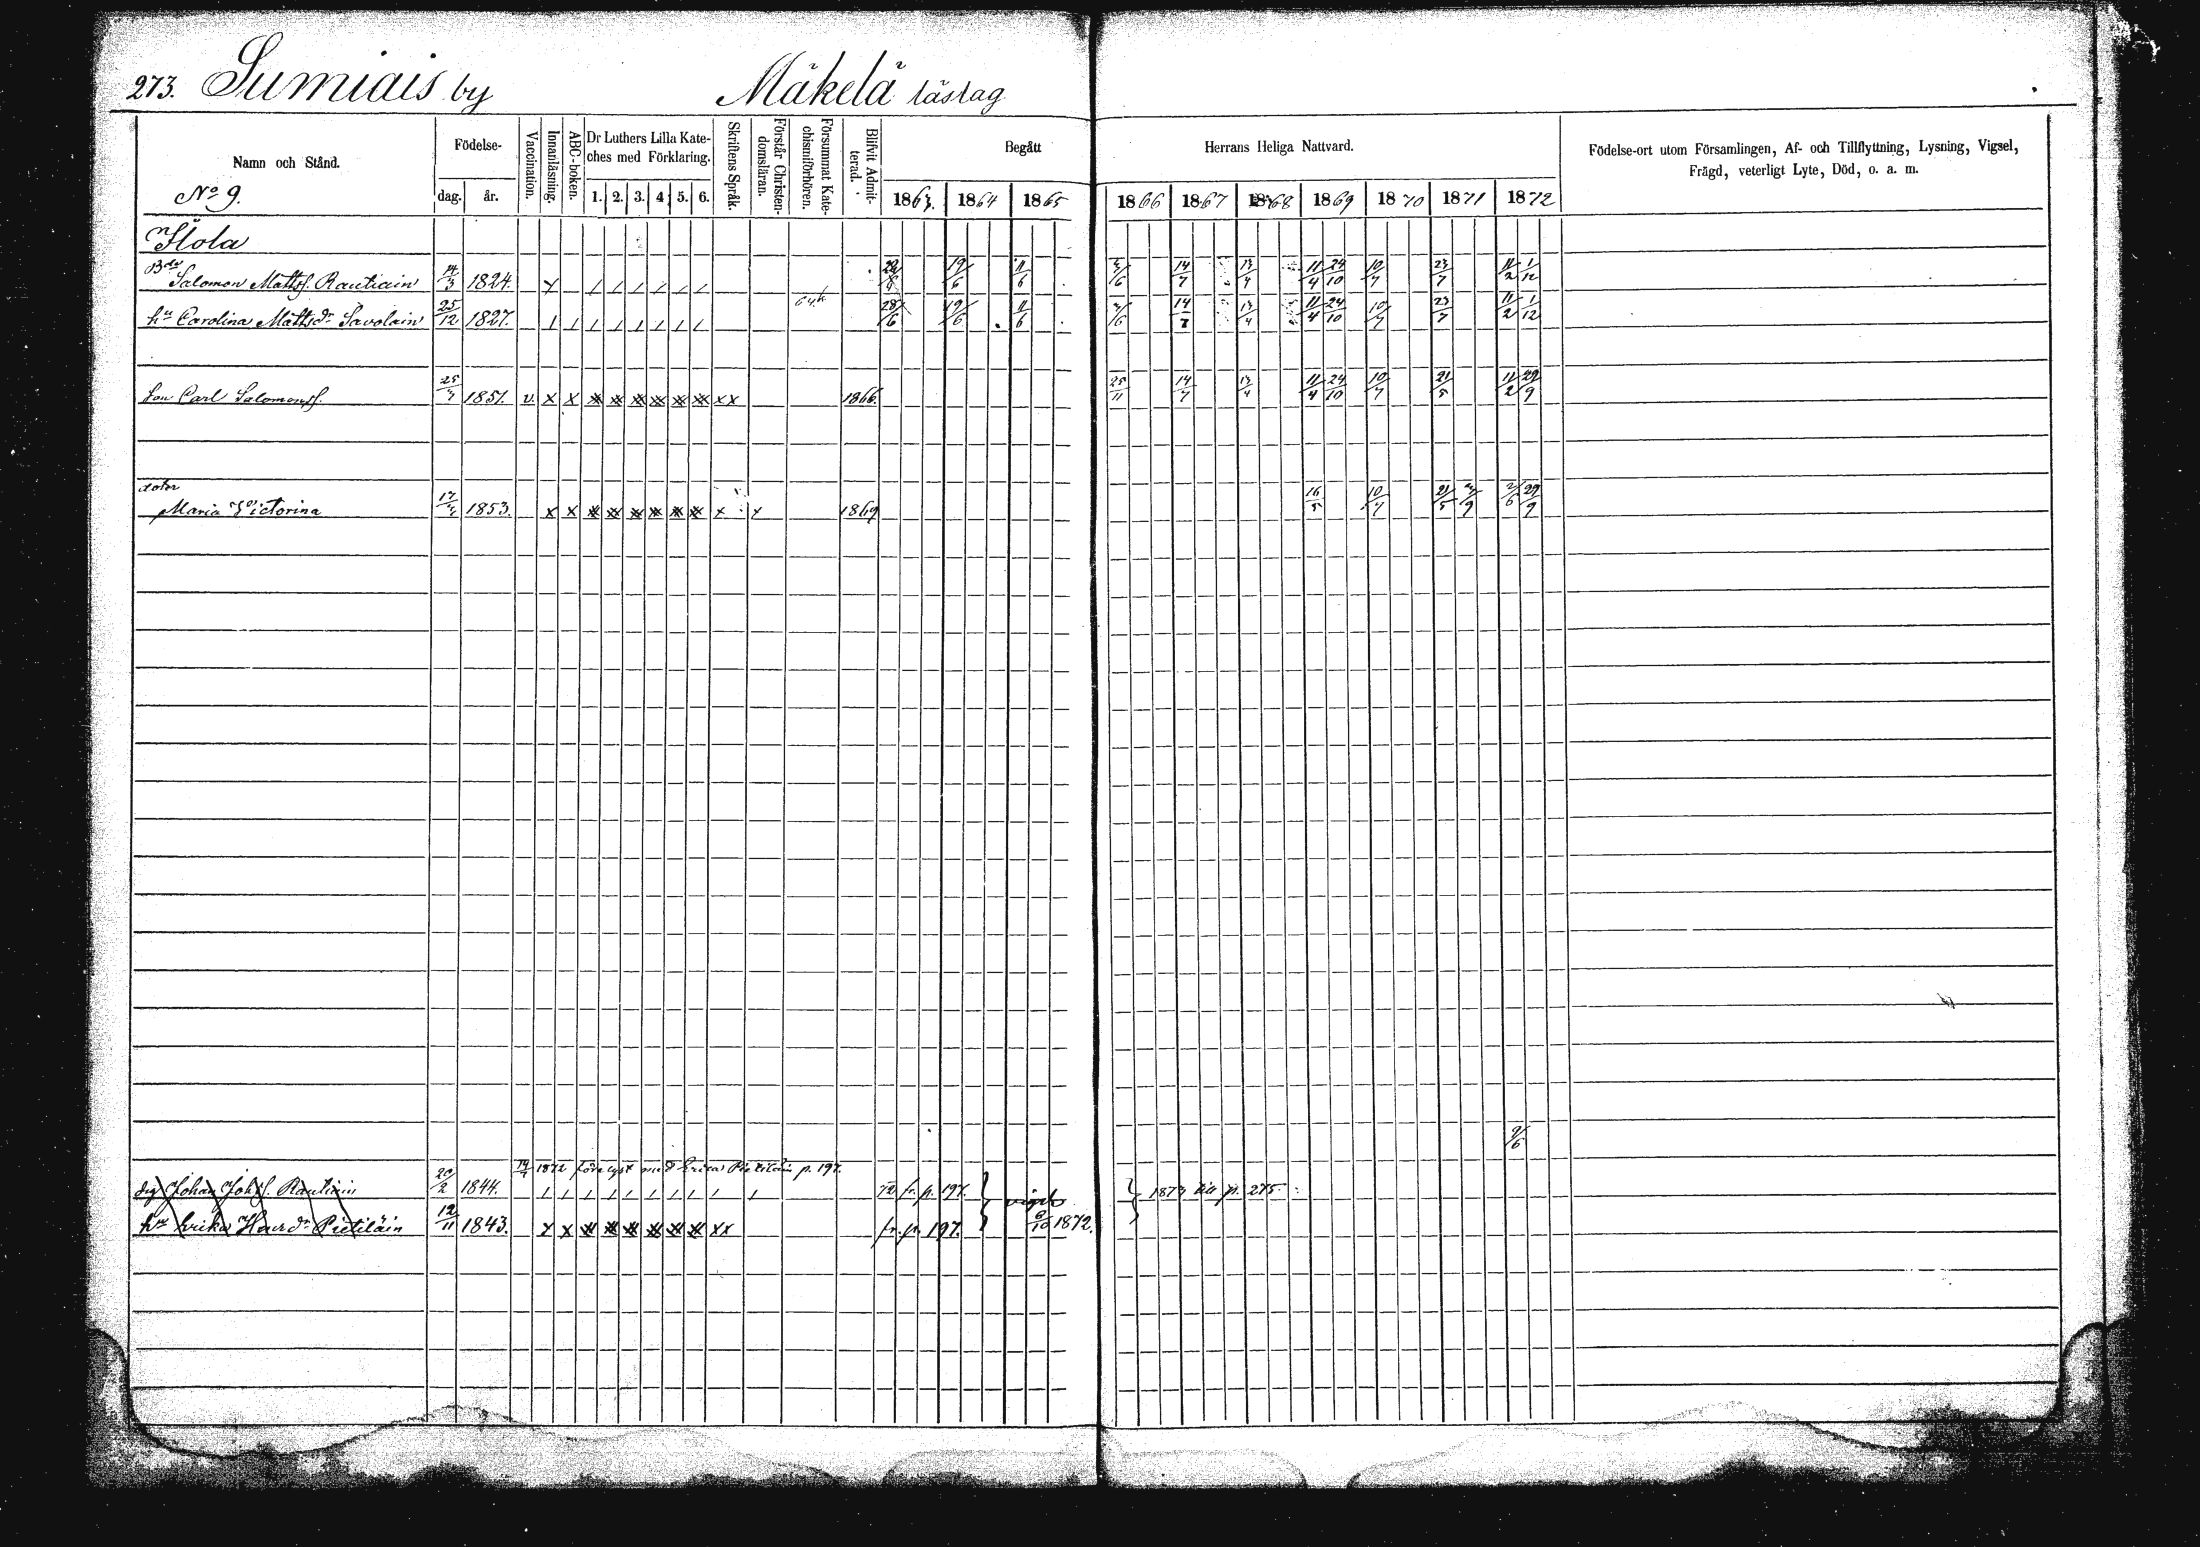 273. Sumiais by Mäkelä lästag
Namn och Stånd.
No 9.
Födelse-
dag. år.
Vaccination.
Innanläsning.
ABC-boken.
Dr Luthers Lilla Kate-
ches med Förklaring.
1. 2. 3. 4 5. 6.
Skriftens Språk.
Förstår Christen-
domsläran.
Försummat Kate-
chismiförhören.
Blifvit Admit-
terad.
Begått Herrans Heliga Nattvard.
1863. 1864 1865 1866 1867 1868 1869 1870 1871 1872
Födelse-ort utom Församlingen, Af- och Tillflyttning, Lysning, Vigsel,
Frägd, veterligt Lyte, Död, o. a. m.
Ilola
Salomon Mattsf. Rautiain 14/3 1824. 19/6 11/6 14/7 13/4 11/4 24/10 10/7 23/7 11/2 1/12
hu Carolina Mattsdr Savolain 25/12 1827. 28/6 19/6 11/6 14/7 13/4 11/4 24/10 10/7 23/7 11/2 1/12
Son Carl Salomonsf. 1851. v x x x x x x x x xx 1866. 25/11 14/7 13/4 11/4 24/10 10/7 21/5 11/2 29/9
dotter
Maria Victorina 1853. x x x x x x x x x x 1869 16/5 10/7 21/5 2/6 29/9
2/6
1872 förelyst med Erica Pietiläin p. 197.
drg Johan Johsf. Rautiain 20/2 1844. 72 fr. p. 197. vigde 1873 till p. 275.
hu Erika Hindr Pietiläin 12/11 1843. x x x x x x x x xx fr. p. 197. 6/10 1872.